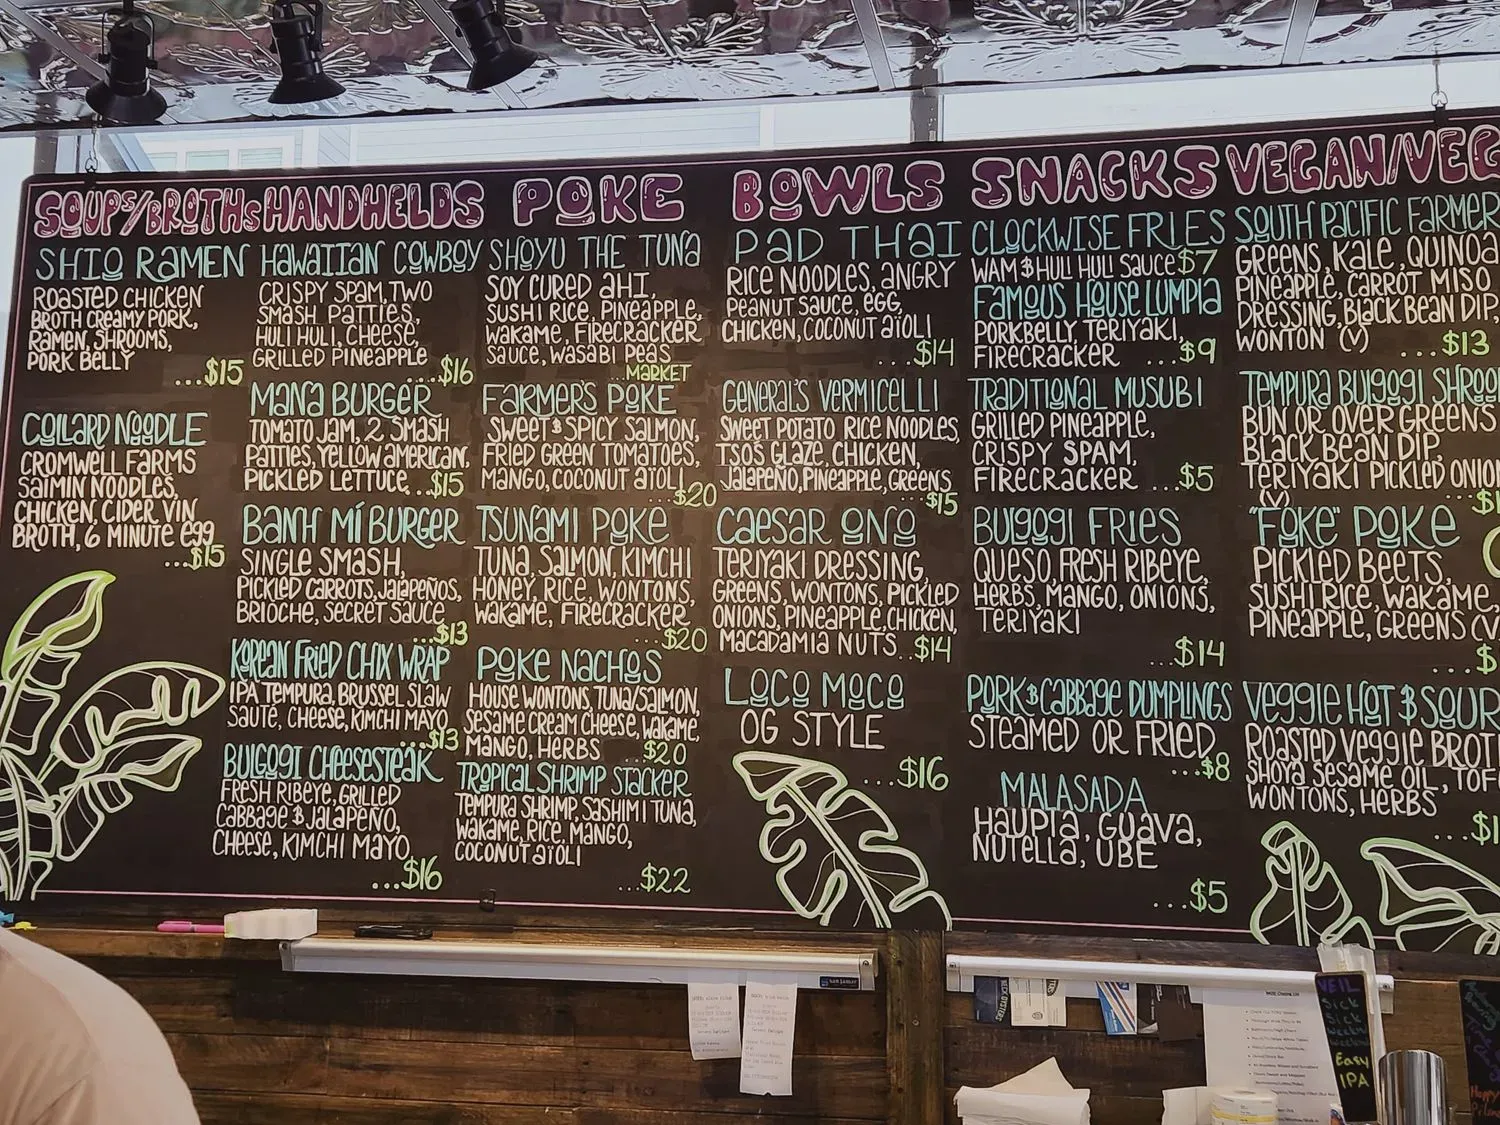 SOUPS/BROTHS
SHIO RAMEN
ROASTED CHICKEN
BROTH CREAMY PORK,
RAMEN, SHROOMS,
PORK BELLY
...$15
COLLARD NOODLE
CROMWELL FARMS
SAIMIN NOODLES,
CHICKEN, CIDER, VIN
BROTH, 6 MINUTE EGG
...$15
HANDHELDS
HAWAIIAN COWBOY
CRISPY SPAM, TWO
SMASH PATTIES,
HULI HULI, CHEESE,
GRILLED PINEAPPLE
...$16
MANA BURGER
TOMATO JAM, 2 SMASH
PATTIES, YELLOW AMERICAN,
PICKLED LETTUCE...$15
BANH MÍ BURGER
SINGLE SMASH,
PICKLED CARROTS, JALAPEÑOS,
BRIOCHE, SECRET SAUCE
...$13
KOREAN FRIED CHIX WRAP
IPA TEMPURA, BRUSSEL SLAW
SAUTE, CHEESE, KIMCHI MAYO
...$13
BULGOGI CHEESESTEAK
FRESH RIBEYE, GRILLED
CABBAGE & JALAPEÑO,
CHEESE, KIMCHI MAYO
...$16
POKE
SHOYU THE TUNA
SOY CURED AHI,
SUSHI RICE, PINEAPPLE,
WAKAME, FIRECRACKER
SAUCE, WASABI PEAS
...MARKET
FARMER'S POKE
SWEET & SPICY SALMON,
FRIED GREEN TOMATOES,
MANGO, COCONUT AÏOLI
...$20
TSUNAMI POKE
TUNA, SALMON, KIMCHI
HONEY, RICE, WONTONS,
WAKAME, FIRECRACKER
...$20
POKE NACHOS
HOUSE WONTONS, TUNA/SALMON,
SESAME CREAM CHEESE, WAKAME,
MANGO, HERBS ...$20
TROPICAL SHRIMP STACKER
TEMPURA SHRIMP, SASHIMI TUNA,
WAKAME, RICE, MANGO,
COCONUT AÏOLI
...$22
BOWLS
PAD THAI
RICE NOODLES, ANGRY
PEANUT SAUCE, EGG,
CHICKEN, COCONUT AÏOLI
...$14
GENERAL'S VERMICELLI
SWEET POTATO RICE NOODLES,
TSO'S GLAZE, CHICKEN,
JALAPEÑO, PINEAPPLE, GREENS
...$15
CAESAR ONO
TERIYAKI DRESSING,
GREENS, WONTONS, PICKLED
ONIONS, PINEAPPLE, CHICKEN,
MACADAMIA NUTS...$14
LOCO MOCO
OG STYLE
...$16
SNACKS
CLOCKWISE FRIES
WAM & HULI HULI SAUCE $7
FAMOUS HOUSE LUMPIA
PORKBELLY, TERIYAKI,
FIRECRACKER ...$9
TRADITIONAL MUSUBI
GRILLED PINEAPPLE,
CRISPY SPAM,
FIRECRACKER ...$5
BULGOGI FRIES
QUESO, FRESH RIBEYE,
HERBS, MANGO, ONIONS,
TERIYAKI
...$14
PORK & CABBAGE DUMPLINGS
STEAMED OR FRIED
...$8
MALASADA
HAUPIA, GUAVA,
NUTELLA, UBE
...$5
VEGAN/VEG
SOUTH PACIFIC FARMER
GREENS, KALE, QUINOA
PINEAPPLE, CARROT MISO
DRESSING, BLACK BEAN DIP,
WONTON (V) ...$13
TEMPURA BULGOGI SHROO
BUN OR OVER GREENS
BLACK BEAN DIP,
TERIYAKI PICKLED ONION
(V) ...$1
"FOKE" POKE
PICKLED BEETS,
SUSHI RICE, WAKAME,
PINEAPPLE, GREENS (V
...$
VEGGIE HOT & SOUR
ROASTED VEGGIE BROT
SHOYA SESAME OIL, TOF
WONTONS, HERBS
...$1
VEIL
Sick
Sick
Easy
IPA